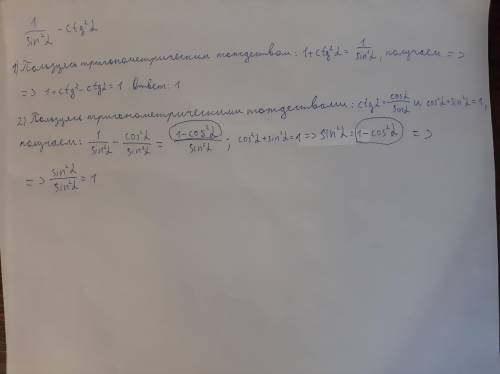 1/sin²α − ctg²α
1) Пользуясь тригонометрическим тождеством: 1+ctg²α = 1/sin²α, получаем =>
=> 1+ctg²α−ctgα=1 Ответ: 1
2) Пользуясь тригонометрическими тождествами: ctgα = cosα/sinα и cos²α+sin²α=1,
получаем: 1/sin²α − cos²α/sin²α = 1−cos²α/sin²α ; cos²α+sin²α=1 => sin²α=1−cos²α =>
=> sin²α/sin²α = 1